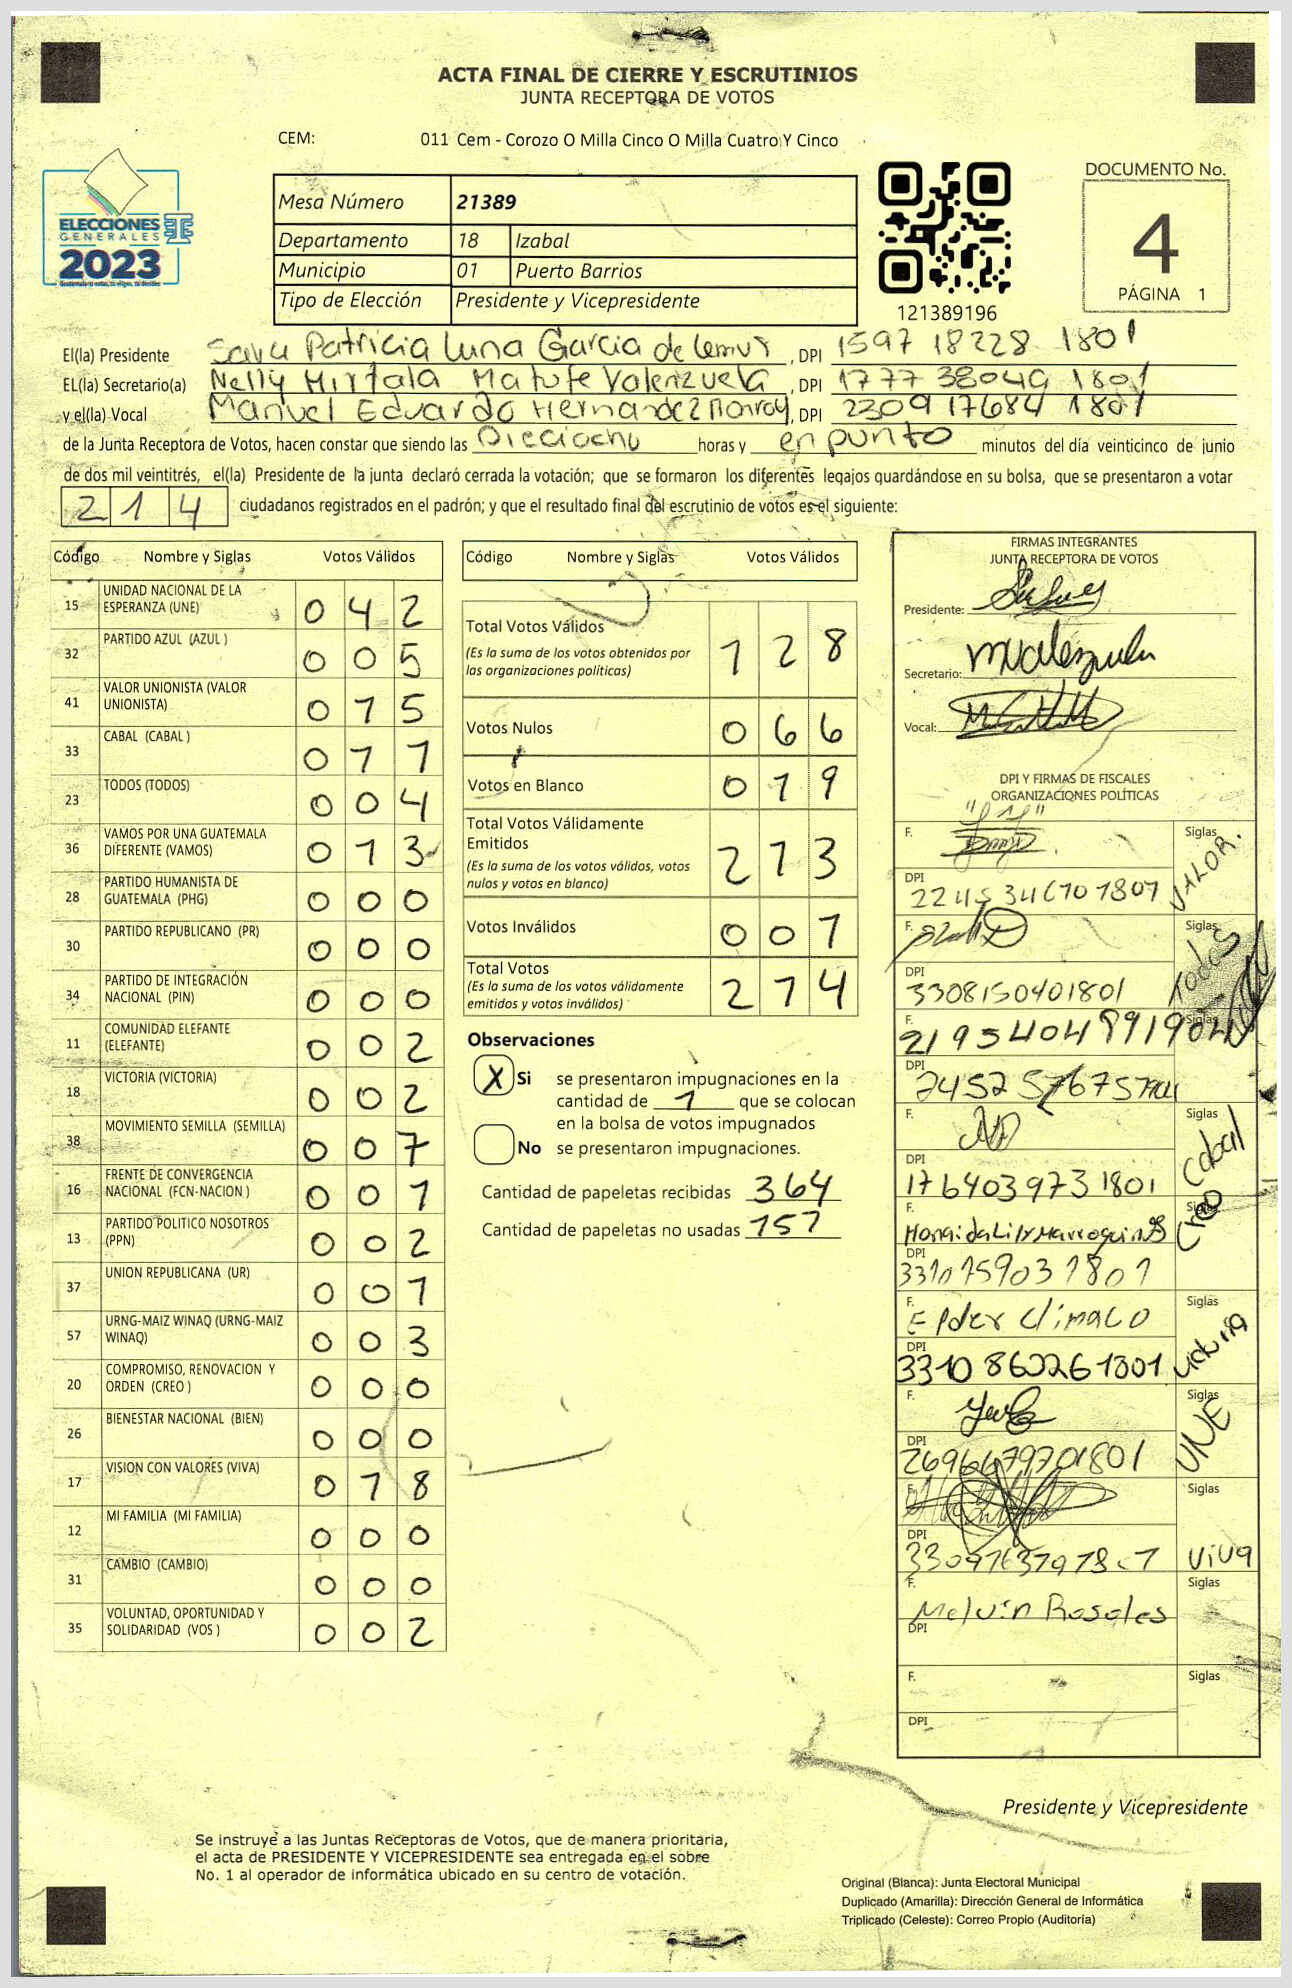 ACTA FINAL DE CIERRE Y ESCRUTINIOS
JUNTA RECEPTORA DE VOTOS
CEM: 011 Cem - Corozo O Milla Cinco O Milla Cuatro Y Cinco
ELECCIONES
GENERALES
2023
Mesa Número 21389
Departamento 18 Izabal
Municipio 01 Puerto Barrios
Tipo de Elección Presidente y Vicepresidente
121389196
DOCUMENTO No.
4
PÁGINA 1
El(la) Presidente Patricia Luna Garcia de Lemus, DPI 1597 18228 1801
EL(la) Secretario(a) Nelly Mirtala Matute Valenzuela, DPI 1777 38049 1801
y el(la) Vocal Manuel Eduardo Hernandez Monroy, DPI 2309 17684 1801
de la Junta Receptora de Votos, hacen constar que siendo las Dieciocho horas y en punto minutos del día veinticinco de junio
de dos mil veintitrés, el(la) Presidente de la junta declaró cerrada la votación; que se formaron los diferentes legajos guardándose en su bolsa, que se presentaron a votar
214 ciudadanos registrados en el padrón; y que el resultado final del escrutinio de votos es el siguiente:
Código Nombre y Siglas Votos Válidos
15 UNIDAD NACIONAL DE LA ESPERANZA (UNE) 0 4 2
32 PARTIDO AZUL (AZUL ) 0 0 5
41 VALOR UNIONISTA (VALOR UNIONISTA) 0 1 5
33 CABAL (CABAL ) 0 1 1
23 TODOS (TODOS) 0 0 4
36 VAMOS POR UNA GUATEMALA DIFERENTE (VAMOS) 0 1 3
28 PARTIDO HUMANISTA DE GUATEMALA (PHG) 0 0 0
30 PARTIDO REPUBLICANO (PR) 0 0 0
34 PARTIDO DE INTEGRACIÓN NACIONAL (PIN) 0 0 0
11 COMUNIDAD ELEFANTE (ELEFANTE) 0 0 2
18 VICTORIA (VICTORIA) 0 0 2
38 MOVIMIENTO SEMILLA (SEMILLA) 0 0 7
16 FRENTE DE CONVERGENCIA NACIONAL (FCN-NACION ) 0 0 1
13 PARTIDO POLITICO NOSOTROS (PPN) 0 0 2
37 UNION REPUBLICANA (UR) 0 0 1
57 URNG-MAIZ WINAQ (URNG-MAIZ WINAQ) 0 0 3
20 COMPROMISO, RENOVACION Y ORDEN (CREO ) 0 0 0
26 BIENESTAR NACIONAL (BIEN) 0 0 0
17 VISION CON VALORES (VIVA) 0 1 8
12 MI FAMILIA (MI FAMILIA) 0 0 0
31 CAMBIO (CAMBIO) 0 0 0
35 VOLUNTAD, OPORTUNIDAD Y SOLIDARIDAD (VOS ) 0 0 2
Código Nombre y Siglas Votos Válidos
Total Votos Válidos 1 2 8
(Es la suma de los votos obtenidos por
las organizaciones políticas)
Votos Nulos 0 6 6
Votos en Blanco 0 1 9
Total Votos Válidamente
Emitidos 2 1 3
(Es la suma de los votos válidos, votos
nulos y votos en blanco)
Votos Inválidos 0 0 1
Total Votos 2 1 4
(Es la suma de los votos válidamente
emitidos y votos inválidos)
Observaciones
X Si se presentaron impugnaciones en la
cantidad de 1 que se colocan
en la bolsa de votos impugnados
No se presentaron impugnaciones.
Cantidad de papeletas recibidas 364
Cantidad de papeletas no usadas 151
FIRMAS INTEGRANTES
JUNTA RECEPTORA DE VOTOS
Presidente:
Secretario:
Vocal:
DPI Y FIRMAS DE FISCALES
ORGANIZACIONES POLÍTICAS
F. Siglas VALOR.
DPI
F. Siglas TODOS
DPI 3308150401801
F. Siglas
DPI
F. Siglas Cabal
DPI 1764039731801
F. Siglas Creo
DPI 3310759031801
F. Elder Climaco Siglas Victoria
DPI 3310860261801
F. Siglas UNE
DPI 2696679701801
F. Siglas
DPI Viva
F. Melvin Rosales Siglas
DPI
F. Siglas
DPI
Presidente y Vicepresidente
Se instruye a las Juntas Receptoras de Votos, que de manera prioritaria,
el acta de PRESIDENTE Y VICEPRESIDENTE sea entregada en el sobre
No. 1 al operador de informática ubicado en su centro de votación.
Original (Blanca): Junta Electoral Municipal
Duplicado (Amarilla): Dirección General de Informática
Triplicado (Celeste): Correo Propio (Auditoría)